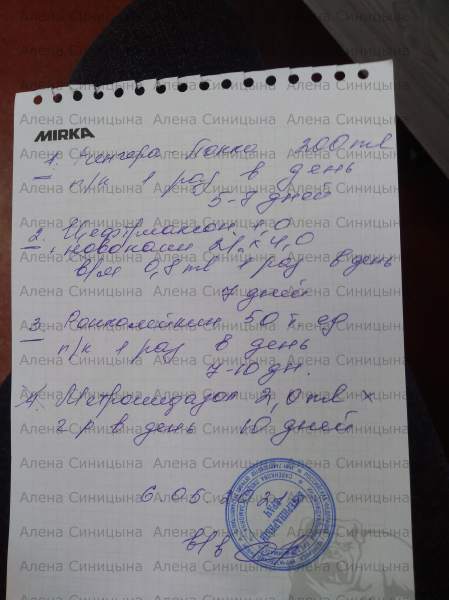 MIRKA
1. Рингера - Локка 200 ml
п/к 1 раз в день
5-8 дней
2. Цефтриаксон 1,0
новокаин 2% 4,0
в/м 0,8 ml 1 раз в день
7 дней
3 Ронколейкин 50 т. ед
п/к 1 раз в день
7-10 дн.
4. Метронидазол 2,0 ml ×
2 р в день 10 дней
6 05
в/в
Алена Синицына